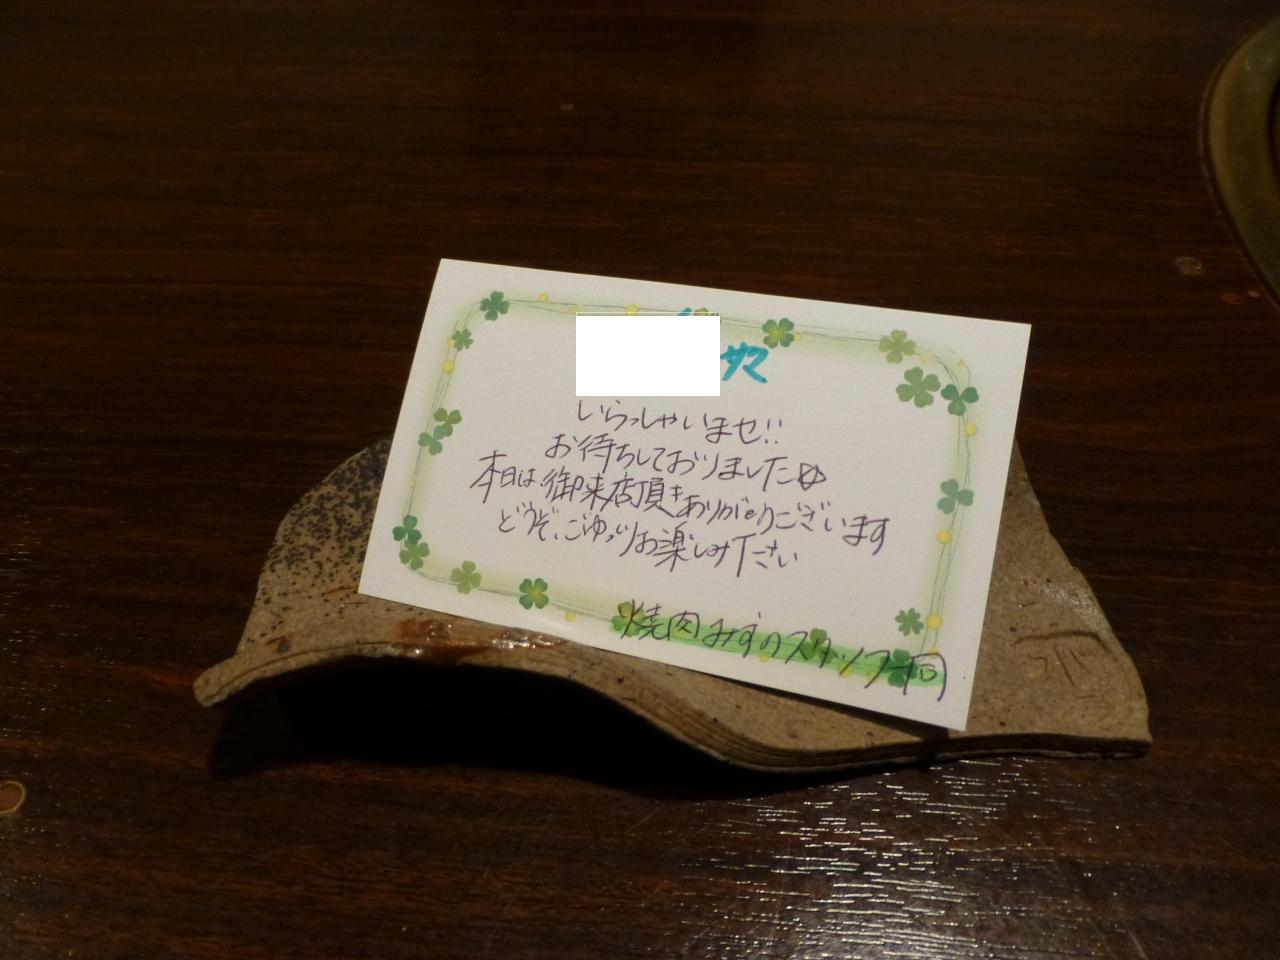 サマ
いらっしゃいませ!!
お待ちしておりました
本日は御来店頂きありがとうございます
どうぞ、ごゆっくりお楽しみ下さい
焼肉みずのスタッフ一同